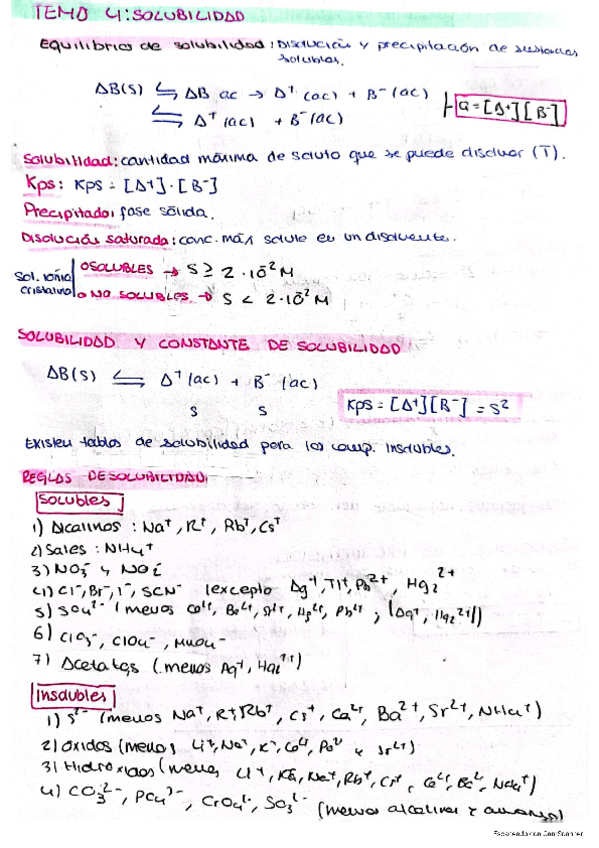 TEMA 4: SOLUBILIDAD
Equilibrios de solubilidad: Disolución y precipitación de sustancias
solubles.
AB(s) ⇆ AB ac → A⁺ (ac) + B⁻ (ac)
⇆ A⁺ (ac) + B⁻ (ac)
Q = [A⁺][B⁻]
Solubilidad: cantidad máxima de soluto que se puede disolver (T).
Kps: Kps = [A⁺]·[B⁻]
Precipitado: fase sólida.
Disolución saturada: conc. más soluto en un disolvente.
Sol. iónica
cristalino
o SOLUBLES → S ≥ 2·10⁻² M
o NO SOLUBLES → S < 2·10⁻² M
SOLUBILIDAD Y CONSTANTE DE SOLUBILIDAD
AB(s) ⇆ A⁺ (ac) + B⁻ (ac)
S S
Kps = [A⁺][B⁻] = S²
Existen tablas de solubilidad para los comp. insolubles.
REGLAS DE SOLUBILIDAD:
Solubles
1) Alcalinos: Na⁺, K⁺, Rb⁺, Cs⁺
2) Sales: NH₄⁺
3) NO₃⁻ y NO₂⁻
4) Cl⁻, Br⁻, I⁻, SCN⁻ (excepto Ag⁺, Tl⁺, Pb²⁺, Hg₂²⁺
5) SO₄²⁻ (menos Ca²⁺, Ba²⁺, Sr²⁺, Hg²⁺, Pb²⁺, (Ag⁺, Hg₂²⁺))
6) ClO₃⁻, ClO₄⁻, MnO₄⁻
7) Acetatos (menos Ag⁺, Hg₂²⁺)
Insolubles
1) S²⁻ (menos Na⁺, K⁺, Rb⁺, Cs⁺, Ca²⁺, Ba²⁺, Sr²⁺, NH₄⁺)
2) Óxidos (menos Li⁺, Na⁺, K⁺, Ca²⁺, Ba²⁺ y Sr²⁺)
3) Hidróxidos (menos Li⁺, K⁺, Na⁺, Rb⁺, Cs⁺, Ca²⁺, Ba²⁺, NH₄⁺)
4) CO₃²⁻, PO₄³⁻, CrO₄²⁻, SO₃²⁻ (menos alcalinos y amonio)
Escaneado con CamScanner